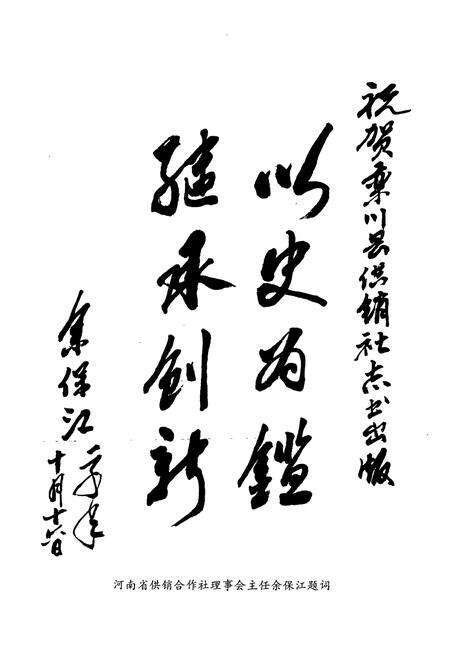 祝贺栾川县供销社志书出版
以史为鑑
继承创新
余保江
十月十六日
河南省供销合作社理事会主任余保江题词